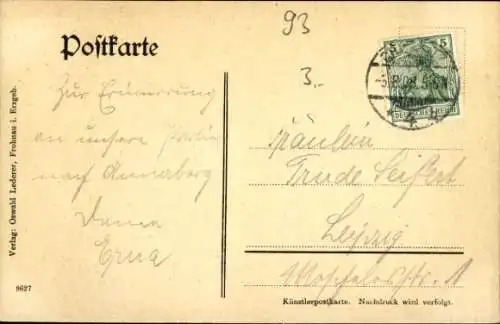 93
Postkarte
3.-
5 5
DEUTSCHES REICH
Zur Erinnerung
an unsere Partie
nach Annaberg
Deine
Erna
Fräulein
Trude Seifert
Leipzig
Moschelesstr. 11
Verlag: Oswald Lederer, Frohnau i. Erzgeb.
8627
Künstlerpostkarte. Nachdruck wird verfolgt.